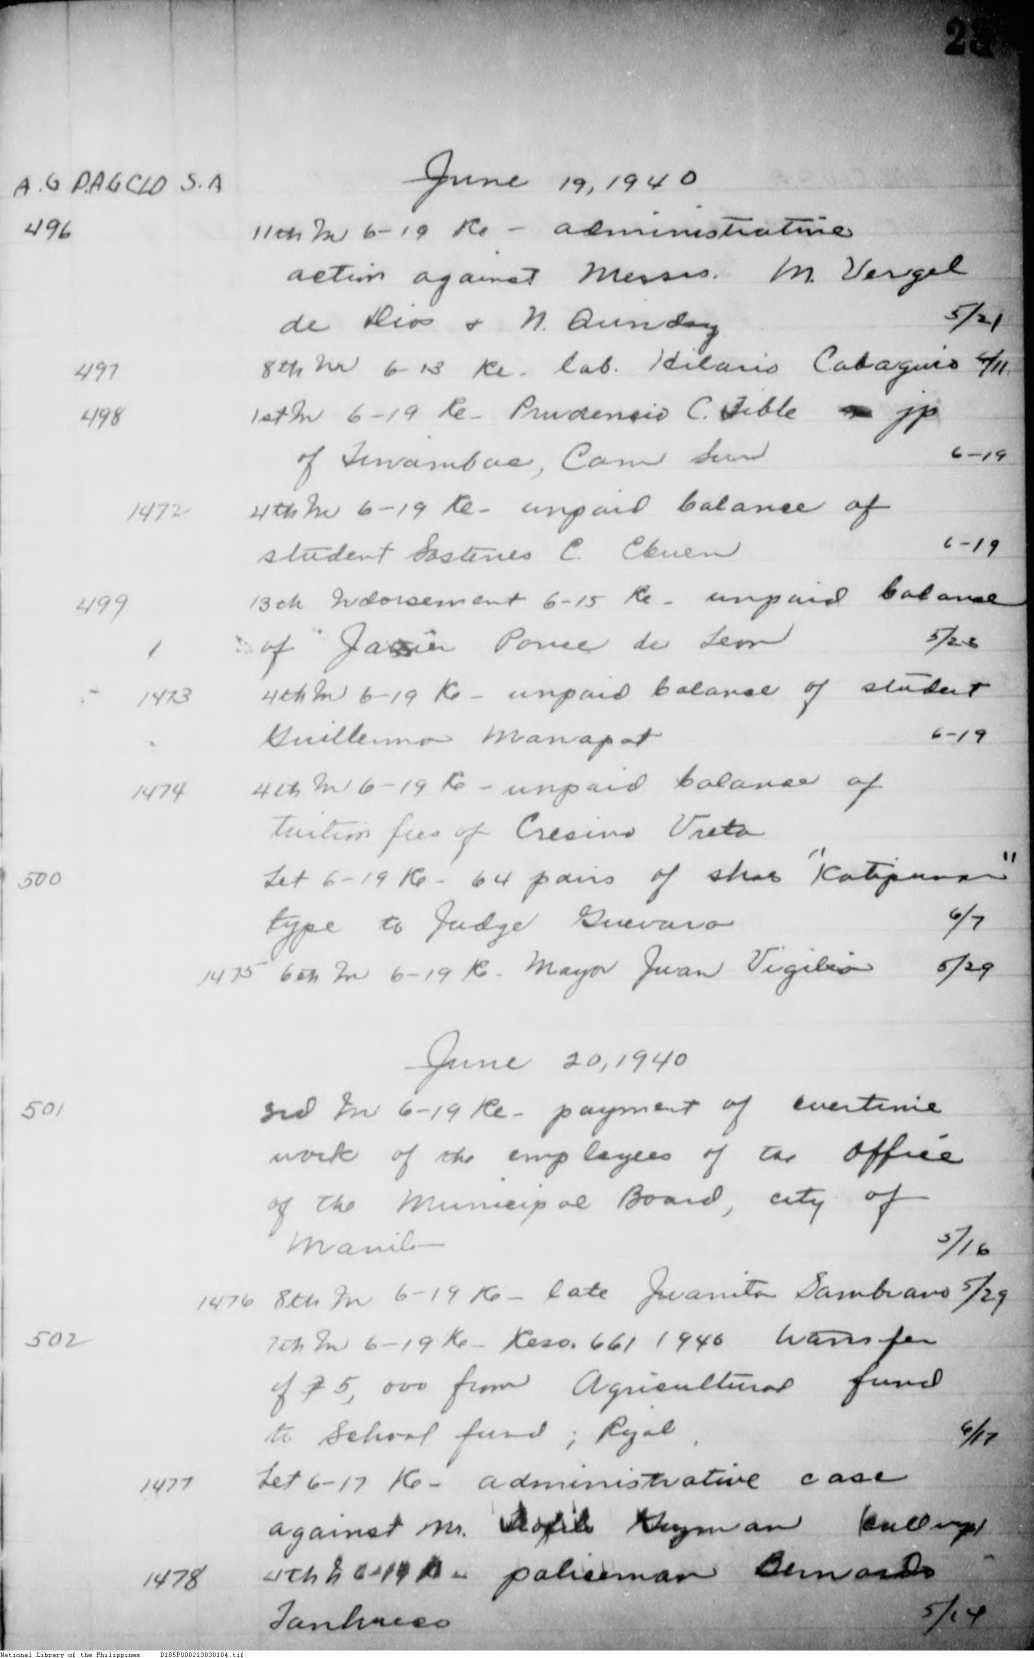 23
A.G P.AG CLD S.A June 19, 1940
496 11th In 6-19 Re - administrative
action against Messrs. M. Vergel
de Dios & N. 5/21
497 8th In 6-13 Re. lab. Hilario Cabaguio 4/11
498 1st In 6-19 Re - Prudencio C. jp
of Tinambac, Cam Sur 6-19
1472 4th In 6-19 Re - unpaid balance of
student Sostenes C. 6-19
499 13th Indorsement 6-15 Re - unpaid balance
of Javier Ponce de Leon 5/23
1473 4th In 6-19 Re - unpaid balance of student
Guillermo Manapat 6-19
1474 4th In 6-19 Re - unpaid balance of
tuition fees of Vreta
500 Let 6-19 Re - 64 pairs of shoes "Katipunan"
type to Judge Guevara 6/7
1475 6th In 6-19 Re. Mayor Juan Vigilia 5/29
June 20, 1940
501 3rd In 6-19 Re - payment of overtime
work of the employees of the Office
of the Municipal Board, city of
Manila 5/16
1476 8th In 6-19 Re - late Juanita Sambrano 5/29
502 7th In 6-19 Re - Reso. 661 1940 transfer
of ₱5,000 from Agricultural fund
to School fund; Rizal. 6/17
1477 Let 6-17 Re - administrative case
against Mr. Guzman
1478 4th In 6-19 Re - policeman Bernardo
5/14
National Library of the Philippines D185P000213838104.tif